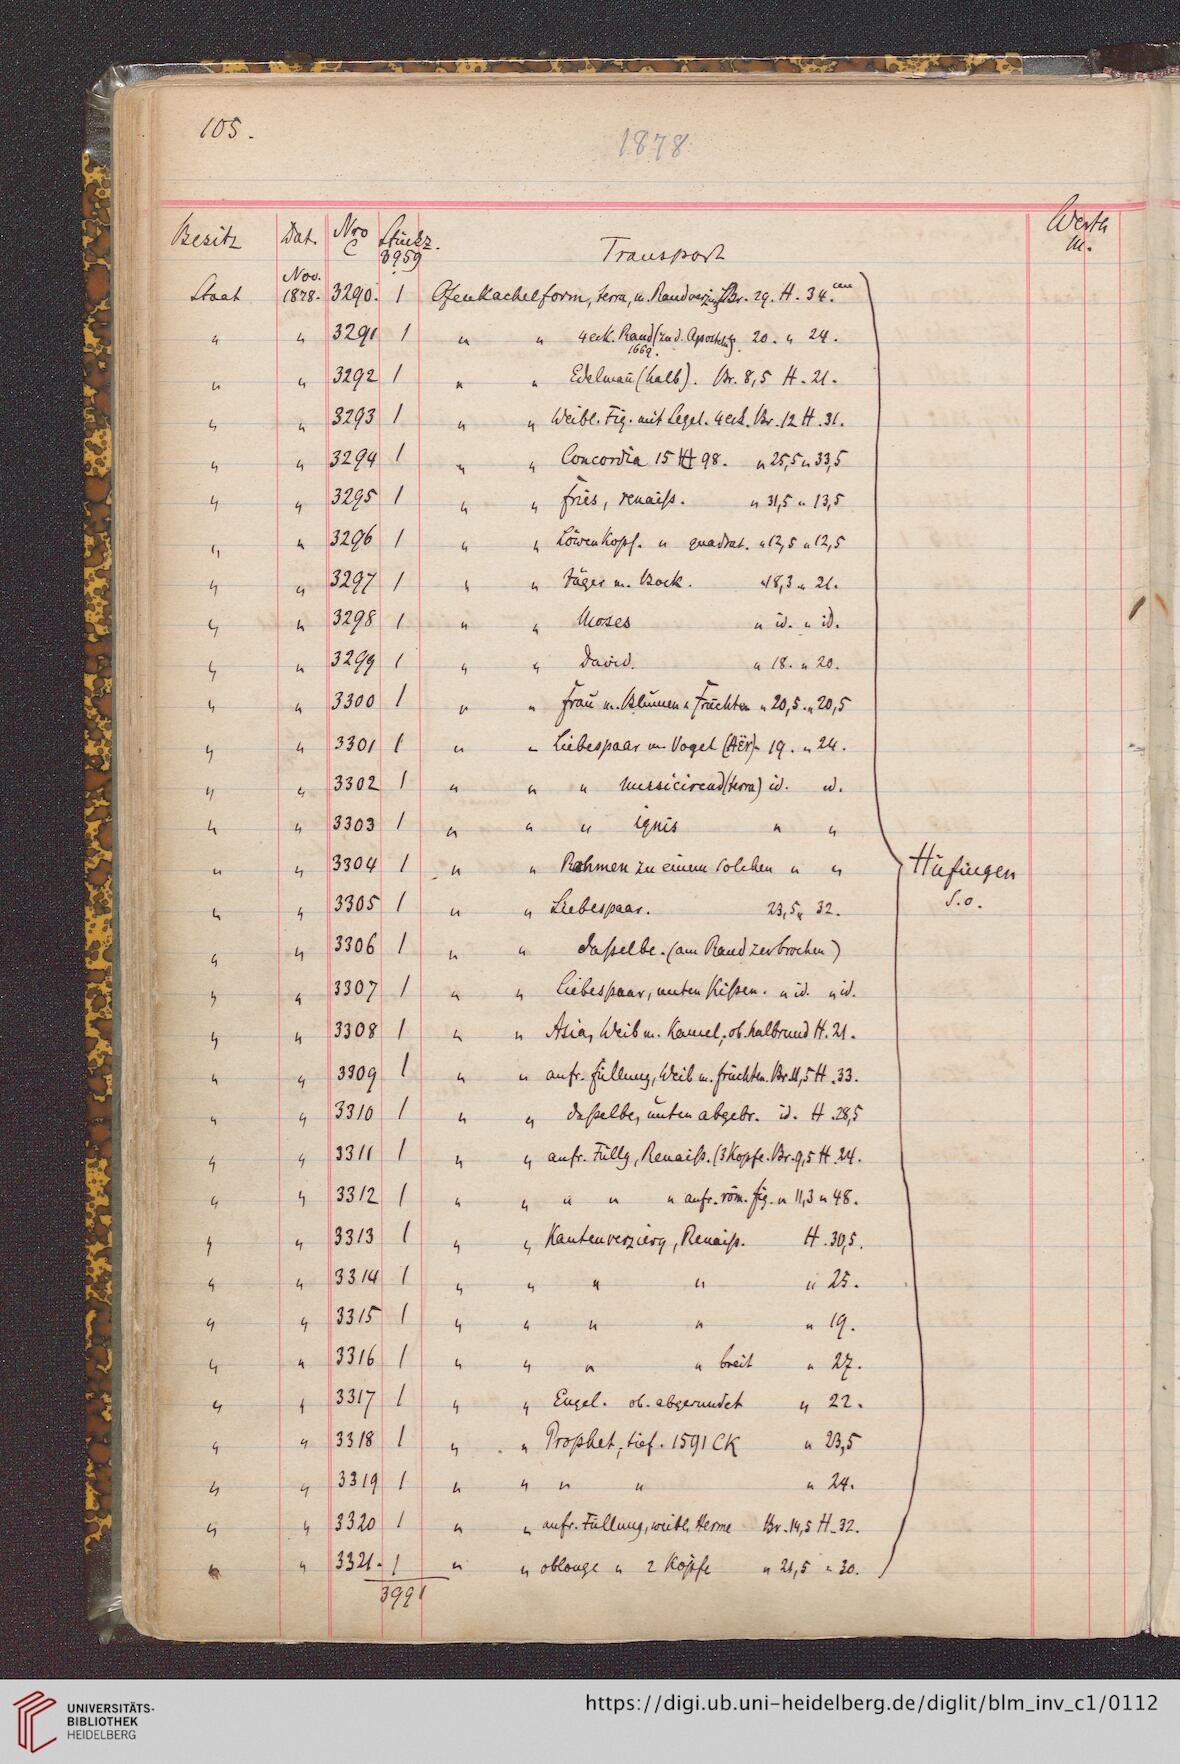 105.
1878
Besitz Dat. Nro C Stückz. Transport Werth M.
3959
Staat Nov. 1878. 3290. 1 Ofenkachelform, terra, m. Randverzieg. Br. 29. H. 34. cm
" " 3291 1 " " 4eck. Rand (zu d. Aposteln). 20. " 24.
1669.
" " 3292 1 " " Edelmañ (halb). Br. 8,5 H. 21.
" " 3293 1 " " Weibl. Fig. mit Segel. 4eck. Br. 12 H. 31.
" " 3294 1 " " Concordia 15 H 98. " 25,5 " 33,5
" " 3295 1 " " Fries, renaiß. " 31,5 " 13,5
" " 3296 1 " " Löwenkopf. " quadrat. " 12,5 " 12,5
" " 3297 1 " " Jäger m. Bock. " 18,3 " 21.
" " 3298 1 " " Moses " id. " id.
" " 3299 1 " " David. " 18. " 20.
" " 3300 1 " " Frau m. Blumen u. Früchten " 20,5. " 20,5
" " 3301 1 " " Liebespaar m. Vogel (Aër) " 19. " 24.
" " 3302 1 " " " musicirend (terra) id. id.
" " 3303 1 " " " ignis " "
" " 3304 1 " " Rahmen zu einem solchen " "
Hüfingen
s.o.
" " 3305 1 " " Liebespaar. 23,5 " 32.
" " 3306 1 " " Daßelbe. (am Rand zerbrochen)
" " 3307 1 " " Liebespaar, unten Kißen. " id. " id.
" " 3308 1 " " Asia, Weib m. Kamel, ob. halbrund H. 21.
" " 3309 1 " " aufr. Füllung, Weib m. Früchten. Br. 11,5 H. 33.
" " 3310 1 " " Daßelbe, unten abgebr. id. H. 28,5
" " 3311 1 " " aufr. Füllg, Renaiß. (3 Köpfe. Br. 9,5 H. 24.
" " 3312 1 " " " " " aufr. röm. Fig. " 11,3 " 48.
" " 3313 1 " " Kantenverzierg, Renaiß. H. 30,5.
" " 3314 1 " " " " " 25.
" " 3315 1 " " " " " 19.
" " 3316 1 " " " " breit " 27.
" " 3317 1 " " Engel. ob. abgerundet " 22.
" " 3318 1 " " Prophet, tief. 1591 CK " 23,5
" " 3319 1 " " " " " 24.
" " 3320 1 " " aufr. Füllung, weibl. Herme Br. 14,5 H. 32.
" " 3321. 1 " " oblonge " 2 Köpfe " 21,5 " 30.
3991
UNIVERSITÄTS-
BIBLIOTHEK
HEIDELBERG
https://digi.ub.uni-heidelberg.de/diglit/blm_inv_c1/0112